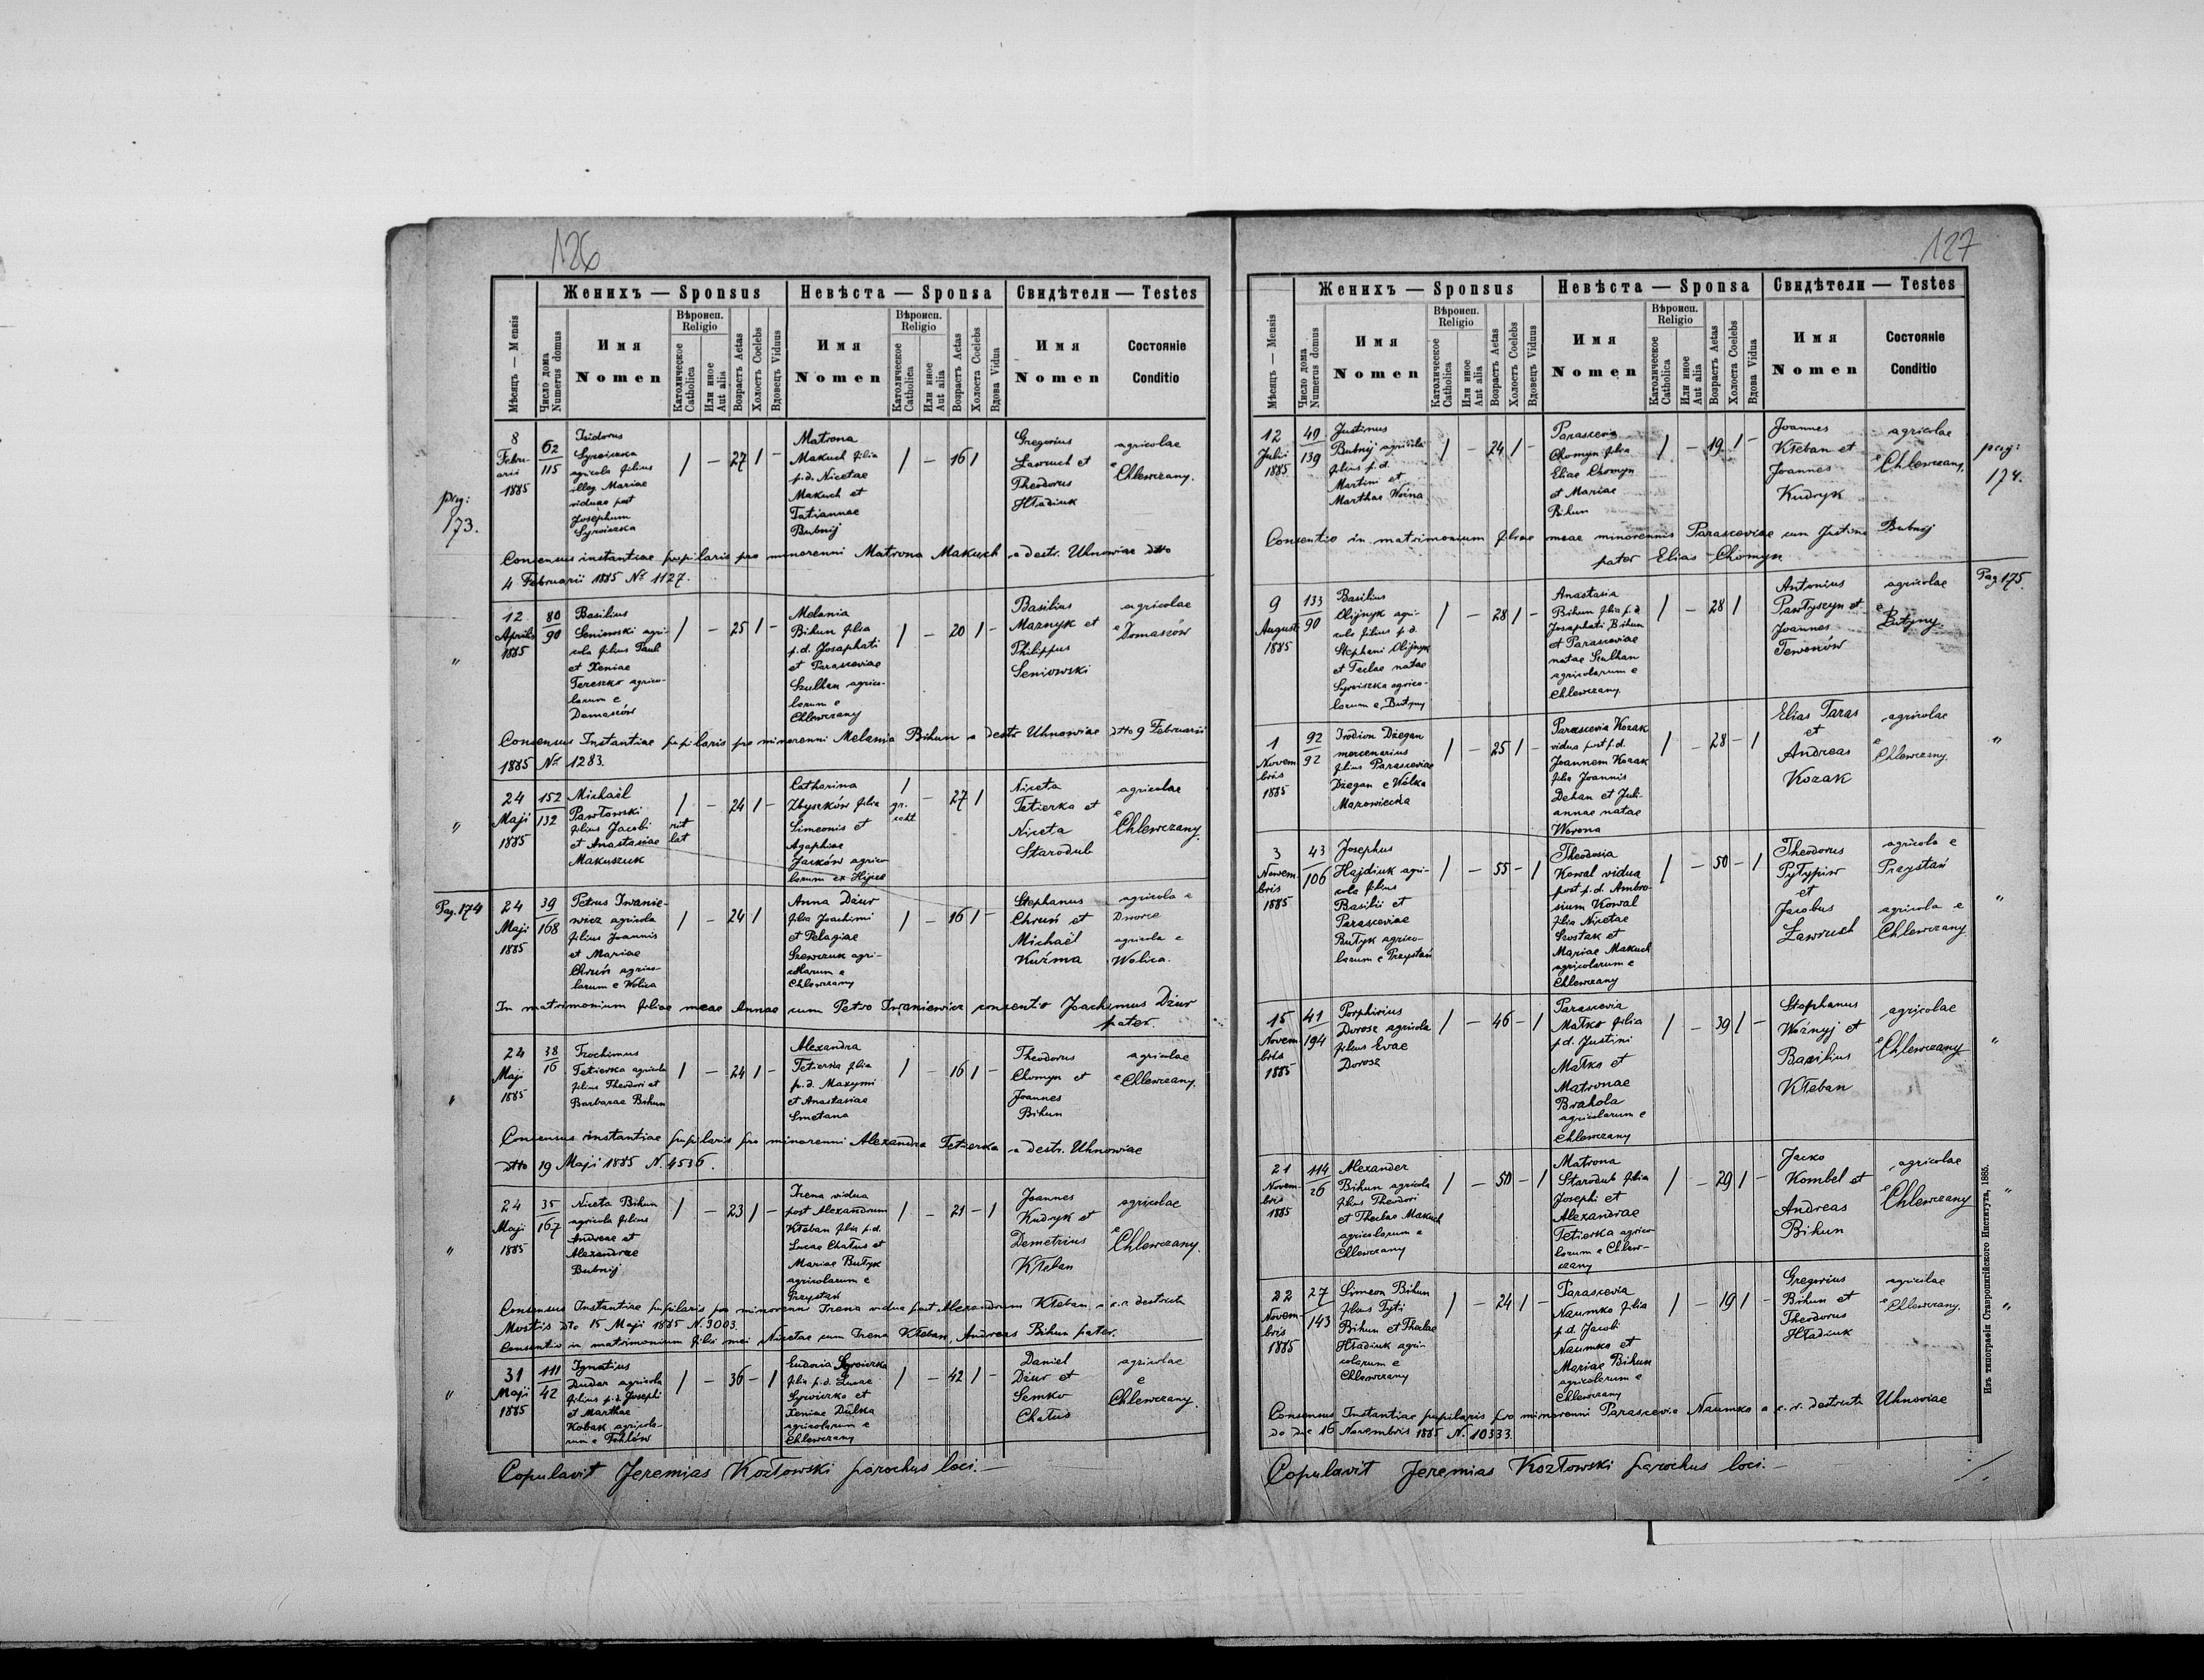 126
Женихъ — Sponsus
Невѣста — Sponsa
Свидѣтели — Testes
Мѣсяцъ — Mensis
Число дома
Numerus domus
Имя
Nomen
Вѣроисп.
Religio
Католическое
Catholica
Или иное
Aut alia
Возрастъ Aetas
Холостъ Coelebs
Вдовецъ Viduus
Имя
Nomen
Вѣроисп.
Religio
Католическое
Catholica
Или иное
Aut alia
Возрастъ Aetas
Холоста Coelebs
Вдова Vidua
Имя
Nomen
Состояніе
Conditio
pag:
173.
8
Febru-
arii
1885
62
115
Isidorus
Syroiczka
agricola filius
illeg. Mariae
viduae post
Josephum
Syroiczka
/ — 27 / —
Matrona
Makuch filia
p.d. Nicetae
Makuch et
Tatiannae
Bubnij
/ — 16 /
Gregorius
Ławruch et
Theodorus
Hładiuk
agricolae
e Chlewczany.
Consensus instantiae pupilaris pro minorenni Matrona Makuch a destr. Uhnowiae dtto
4 Februarii 1885 № 1127.
"
12
Aprilis
1885
80
90
Basilius
Seniowski agri-
cola filius Pauli
et Xeniae
Tereszko agrico-
larum e
Domaszów
/ — 25 / —
Melania
Bihun filia
p.d. Josaphati
et Parasceviae
Szulhan agrico-
larum e
Chlewczany
/ — 20 / —
Basilius
Maznyk et
Philippus
Seniowski
agricolae
e Domaszów
Consensus Instantiae pupilaris pro minorenni Melania Bihun a destr. Uhnowiae dtto 9 Februarii
1885 № 1283.
"
24
Maji
1885
152
132
Michaël
Pawłowski
filius Jacobi
et Anastasiae
Makuszuk
/ — 24 / —
rit
lat
Catharina
Zbyszków filia
Simeonis et
Agaphiae
Jacków agrico
larum ex Hijcze
/ — 27 /
gr.
Niceta
Tetierka et
Niceta
Starodub
agricolae
e Chlewczany.
Pag. 174
24
Maji
1885
39
168
Petrus Iwanie-
wicz agricola
filius Joannis
et Mariae
Chruń agrico-
larum e Wolica
/ — 24 /
Anna Dziur
filia Joachimi
et Pelagiae
Szewczuk agri-
colarum e
Chlewczany
/ — 16 / —
Stephanus
Chruń et
Michaël
Kuźma
agricola e
Dworce
agricola e
Wolica.
In matrimonium filiae meae Annae cum Petro Iwaniewicz consentio Joachimus Dziur
pater.
"
24
Maji
1885
38
16
Trochimus
Tetierka agricola
filius Theodori et
Barbarae Bihun
/ — 24 / —
Alexandra
Tetierka filia
p.d. Maxymi
et Anastasiae
Smetana
/ — 16 / —
Theodorus
Chomyn et
Joannes
Bihun
agricolae
e Chlewczany.
Consensus instantiae pupilaris pro minorenni Alexandra Tetierka a destr. Uhnowiae
dtto 19 Maji 1885 N. 4536.
"
24
Maji
1885
35
167
Niceta Bihun
agricola filius
Andreae et
Alexandrae
Bubnij
/ — 23 / —
Irena vidua
post Alexandrum
Kłeban filia p.d.
Lucae Chatus et
Mariae Butyk
agricolarum e
Przystań
/ — 21 — /
Joannes
Kudryk et
Demetrius
Kłeban
agricolae
e Chlewczany.
Consensus Instantiae pupilaris pro minorenni Irena vidua post Alexandrum Kłeban, a c.r. destricta
Mostis dto 15 Maji 1885 N. 3003.
Consentio in matrimonium filii mei Nicetae cum Irena Kłeban, Andreas Bihun pater.
"
31
Maji
1885
111
42
Ignatius
Dudar agricola
filius p.d. Josephi
et Marthae
Kobak agricola-
rum e Tehlów
/ — 36 — /
Eudoxia Syroiczka
filia p.d. Lucae
Syroiczka et
Xeniae Dulka
agricolarum e
Chlewczany
/ — 42 / —
Daniel
Dziur et
Semko
Chatus
agricolae
e
Chlewczany.
Copulavit Jeremias Kozłowski parochus loci.—
127
Женихъ — Sponsus
Невѣста — Sponsa
Свидѣтели — Testes
Мѣсяцъ — Mensis
Число дома
Numerus domus
Имя
Nomen
Вѣроисп.
Religio
Католическое
Catholica
Или иное
Aut alia
Возрастъ Aetas
Холостъ Coelebs
Вдовецъ Viduus
Имя
Nomen
Вѣроисп.
Religio
Католическое
Catholica
Или иное
Aut alia
Возрастъ Aetas
Холоста Coelebs
Вдова Vidua
Имя
Nomen
Состояніе
Conditio
12
Julii
1885
40
139
Justinus
Bubnij agricola
filius p.d.
Martini et
Marthae Woina
/ — 24 / —
Parascevia
Chomyn filia
Eliae Chomyn
et Mariae
Bihun
/ — 19 / —
Joannes
Kłeban et
Joannes
Kudryk
agricolae
e Chlewczany.
pag:
174.
Consentio in matrimonium filiae meae minorennis Parasceviae cum Justino Bubnij
pater Elias Chomyn
9
Augusti
1885
133
90
Basilius
Olijnyk agri-
cola filius p.d.
Stephani Olijnyk
et Teclae natae
Syroiczka agrico-
larum e Butyny
/ — 28 / —
Anastasia
Bihun filia p.d.
Josaphati Bihun
et Parasceviae
natae Szulhan
agricolarum e
Chlewczany.
/ — 28 /
Antonius
Pawłyszyn et
Joannes
Tewonów
agricolae
e Butyny.
Pag. 175.
1
Novem
bris
1885
92
92
Irodion Dżegan
mercenarius
filius Parasceviae
Dżegan e Wólka
Mazowiecka
/ — 25 / —
Parascevia Kozak
vidua post p.d.
Joannem Kozak
filia Joannis
Dehan et Juli-
annae natae
Worona
/ — 28 — /
Elias Taras
et
Andreas
Kozak
agricolae
e Chlewczany.
"
3
Novem-
bris
1885
43
106
Josephus
Hajdiuk agri-
cola filius
Basilii et
Parasceviae
Butyk agrico-
larum e Przystań
/ — 55 — /
Theodosia
Kowal vidua
post p.d. Ambro-
sium Kowal
filia Nicetae
Szostak et
Mariae Makuch
agricolarum e
Chlewczany
/ — 50 — /
Theodorus
Pyłypiw
et
Jacobus
Ławruch
agricola e
Przystań
agricola e
Chlewczany.
"
15
Novem-
bris
1885
41
194
Porphirius
Dorosz agricola
filius Evae
Dorosz
/ — 46 — /
Parascevia
Matko filia
p.d. Justini
Matko et
Matronae
Brahola
agricolarum e
Chlewczany
/ — 39 / —
Stephanus
Woźnyj et
Basilius
Kłeban
agricolae
e Chlewczany
"
21
Novem-
bris
1885
114
26
Alexander
Bihun agricola
filius Theodori
et Theclae Makuch
agricolarum e
Chlewczany
/ — 50 — /
Matrona
Starodub filia
Josephi et
Alexandrae
Tetierka agrico
larum e Chlew-
czany
/ — 29 / —
Jacko
Kombel et
Andreas
Bihun
agricolae
e Chlewczany
"
22
Novem-
bris
1885
27
143
Simeon Bihun
filius Tyti
Bihun et Theclae
Hładiuk agri-
colarum e
Chlewczany
/ — 24 / —
Parascevia
Naumko filia
p.d. Jacobi
Naumko et
Mariae Bihun
agricolarum e
Chlewczany
/ — 19 / —
Gregorius
Bihun et
Theodorus
Hładiuk
agricolae
e Chlewczany.
"
Consensus Instantiae pupilaris pro minorenni Parascevia Naumko a c.r. destricta Uhnoviae
16 Novembris 1885 N. 10333.
Copulavit Jeremias Kozłowski parochus loci.—
Изъ типографіи Ставропигійского Института, 1885.